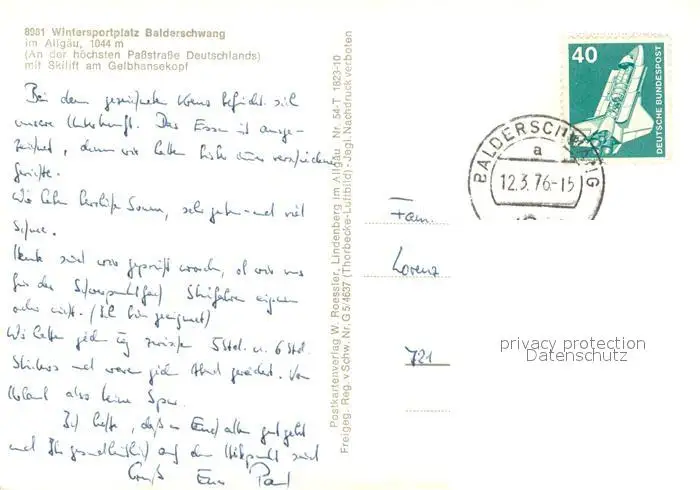 8981 Wintersportplatz Balderschwang
im Allgäu, 1044 m
(An der höchsten Paßstraße Deutschlands)
mit Skilift am Gelbhansekopf
Bei dem gezeichneten Kreuz befindet sich
unsere Unterkunft. Das Essen ist ausge-
zeichnet, denn wir hatten bisher immer verschiedene
Gerichte.
Wir haben herrliche Sonne, sehr guten und viel
Schnee.
Heute sind wir geprüft worden, ob wir uns
für das Schwerpunktfach Skifahren eignen
oder nicht. (Ich bin geeignet)
Wir hatten jeden Tag zwischen 5 Std. u. 6 Std.
Skikurs und waren jeden Abend gerädert. Von
Urlaub also keine Spur.
Ich hoffe, daß es Euch allen gut geht
und Ihr gesundheitlich auf dem Höhepunkt seid
Gruß Euer Paul
Postkartenverlag W. Roessler, Lindenberg im Allgäu Nr. 54-T 1823-10
Freigeg. Reg. v. Schw. Nr. G 5/4637 (Thorbecke-Luftbild) - Jegl. Nachdruck verboten
40
DEUTSCHE BUNDESPOST
BALDERSCHWANG
a
12.3.76-15
Fam.
Lorenz
721
privacy protection
Datenschutz